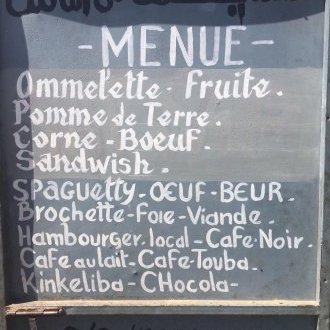 -MENUE-
Ommelette- fruite.
Pomme de Terre.
Corne-Boeuf.
Sandwish.
Spaguetty-OEUF-BEUR.
Brochette-Foie-Viande.
Hambourger local-Cafe-Noir.
Cafe au lait-Cafe-Touba.
Kinkeliba-CHocola-